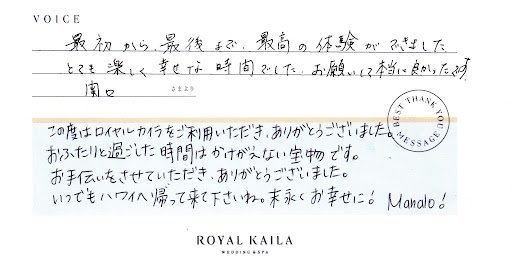 VOICE
最初から、最後まで、最高の体験ができました
とても楽しく幸せな時間でした。お願いして本当に良かったです
関口 さまより
BEST THANK YOU MESSAGE
この度はロイヤルカイラをご利用いただき、ありがとうございました。
おふたりと過ごした時間はかけがえない宝物です。
お手伝いをさせていただき、ありがとうございました。
いつでもハワイへ帰って来て下さいね。末永くお幸せに! Mahalo!
ROYAL KAILA
WEDDING & SPA